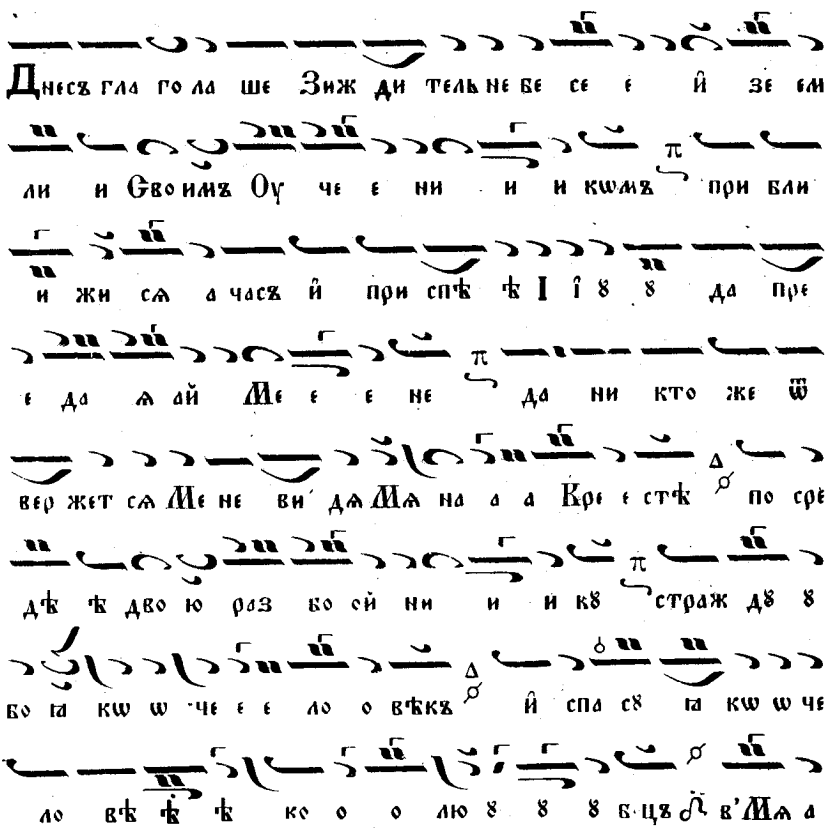 Днесъ гла го ла ше Зиж ди тель не бе се е й зе ем
ли и Сво имъ Оу че е ни и и кѡмъ при бли
и жи сѧ а часъ й при спѣ ѣ І і ꙋ ꙋ да пре
е да ѧ ай Ме е е не да ни кто же ѿ
вер жет сѧ Ме не ви дѧ Мѧ на а а Кре е стѣ по сре
дѣ ѣ дво ю раз бо ой ни и и кꙋ страж дꙋ ꙋ
бо ꙗ кѡ ѡ че е е ло о вѣкъ й спа сꙋ ꙗ кѡ ѡ че
ло вѣ ѣ ѣ ко о о лю ꙋ ꙋ ꙋ б цъ в' Мѧ а